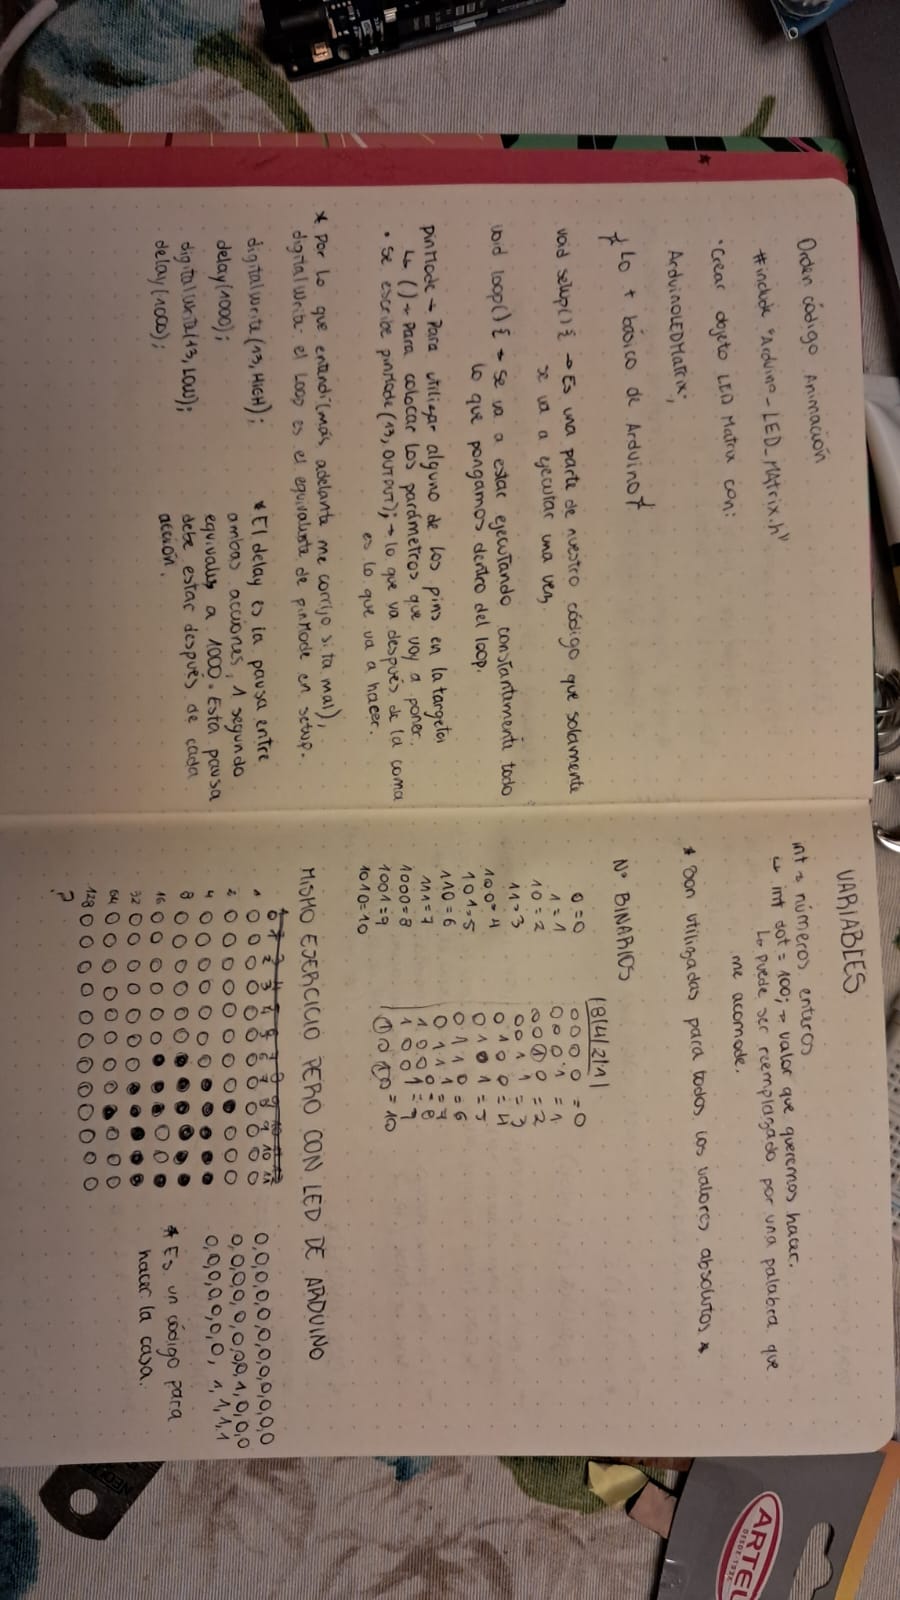 Orden código Animación
#include "Arduino_LED_Matrix.h"
• Crear objeto LED Matrix con:
ArduinoLEDMatrix;
* Lo + básico de Arduino *
void setup(){ → Es una parte de nuestro código que solamente
se va a ejecutar una vez,
void loop(){ → Se va a estar ejecutando constantemente todo
lo que pongamos dentro del loop.
pinMode → Para utilizar alguno de los pins en la targeta
↳ () → Para colocar los parámetros que voy a poner.
• Se escribe pinMode(13, OUTPUT); → lo que va después de la coma
es lo que va a hacer.
* Por lo que entendí (más adelante me corrijo si ta mal),
digitalWrite: el Loop es el equivalente de pinMode en setup.
digitalWrite(13, HIGH);
delay(1000);
digitalWrite(13, LOW);
delay(1000);
* El delay es la pausa entre
ambas acciones, 1 segundo
equivale a 1000. Esta pausa
debe estar después de cada
acción.
VARIABLES
int = números enteros
↳ int dot = 100; → valor que queremos hacer.
↳ puede ser reemplazado por una palabra que
me acomode.
* Son utilizadas para todos los valores absolutos *.
N° BINARIOS
0=0
1=1
10=2
11=3
100=4
101=5
110=6
111=7
1000=8
1001=9
1010=10
|8|4|2|1|
0 0 0 0 = 0
0 0 0 1 = 1
0 0 1 0 = 2
0 0 1 1 = 3
0 1 0 0 = 4
0 1 0 1 = 5
0 1 1 0 = 6
0 1 1 1 = 7
1 0 0 0 = 8
1 0 0 1 = 9
1 0 1 0 = 10
MISMO EJERCICIO PERO CON LED DE ARDUINO
1
2
4
8
16
32
64
128
?
0,0,0,0,0,0,0,0,0,0,0,0
0,0,0,0,0,0,0,0,1,0,0,0
0,0,0,0,0,0,0,1,1,1,1
* Es un código para
hacer la casa.
ARTEL
DESDE 1932